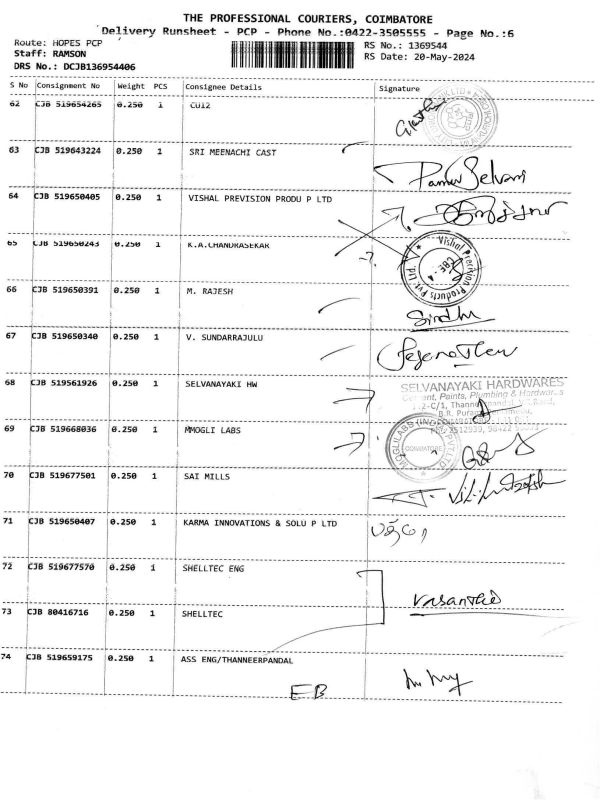 THE PROFESSIONAL COURIERS, COIMBATORE
Delivery Runsheet - PCP - Phone No.:0422-3505555 - Page No.:6
Route: HOPES PCP
Staff: RAMSON
DRS No.: DCJB136954406
RS No.: 1369544
RS Date: 20-May-2024
S No Consignment No Weight PCS Consignee Details Signature
62 CJB 519654265 0.250 1 CUI2
63 CJB 519643224 0.250 1 SRI MEENACHI CAST
64 CJB 519650405 0.250 1 VISHAL PREVISION PRODU P LTD
65 CJB 519650243 0.250 1 K.A.CHANDRASEKAR
Vishal Precision Products Pvt. Ltd.
CBE - 4
66 CJB 519650391 0.250 1 M. RAJESH
Sindhu
67 CJB 519650340 0.250 1 V. SUNDARRAJULU
68 CJB 519561926 0.250 1 SELVANAYAKI HW
SELVANAYAKI HARDWARES
Cement, Paints, Plumbing & Hardwares
69 CJB 519668036 0.250 1 MMOGLI LABS
COIMBATORE
70 CJB 519677501 0.250 1 SAI MILLS
71 CJB 519650407 0.250 1 KARMA INNOVATIONS & SOLU P LTD
72 CJB 519677570 0.250 1 SHELLTEC ENG
Vasanthi
73 CJB 80416716 0.250 1 SHELLTEC
74 CJB 519659175 0.250 1 ASS ENG/THANNEERPANDAL
EB